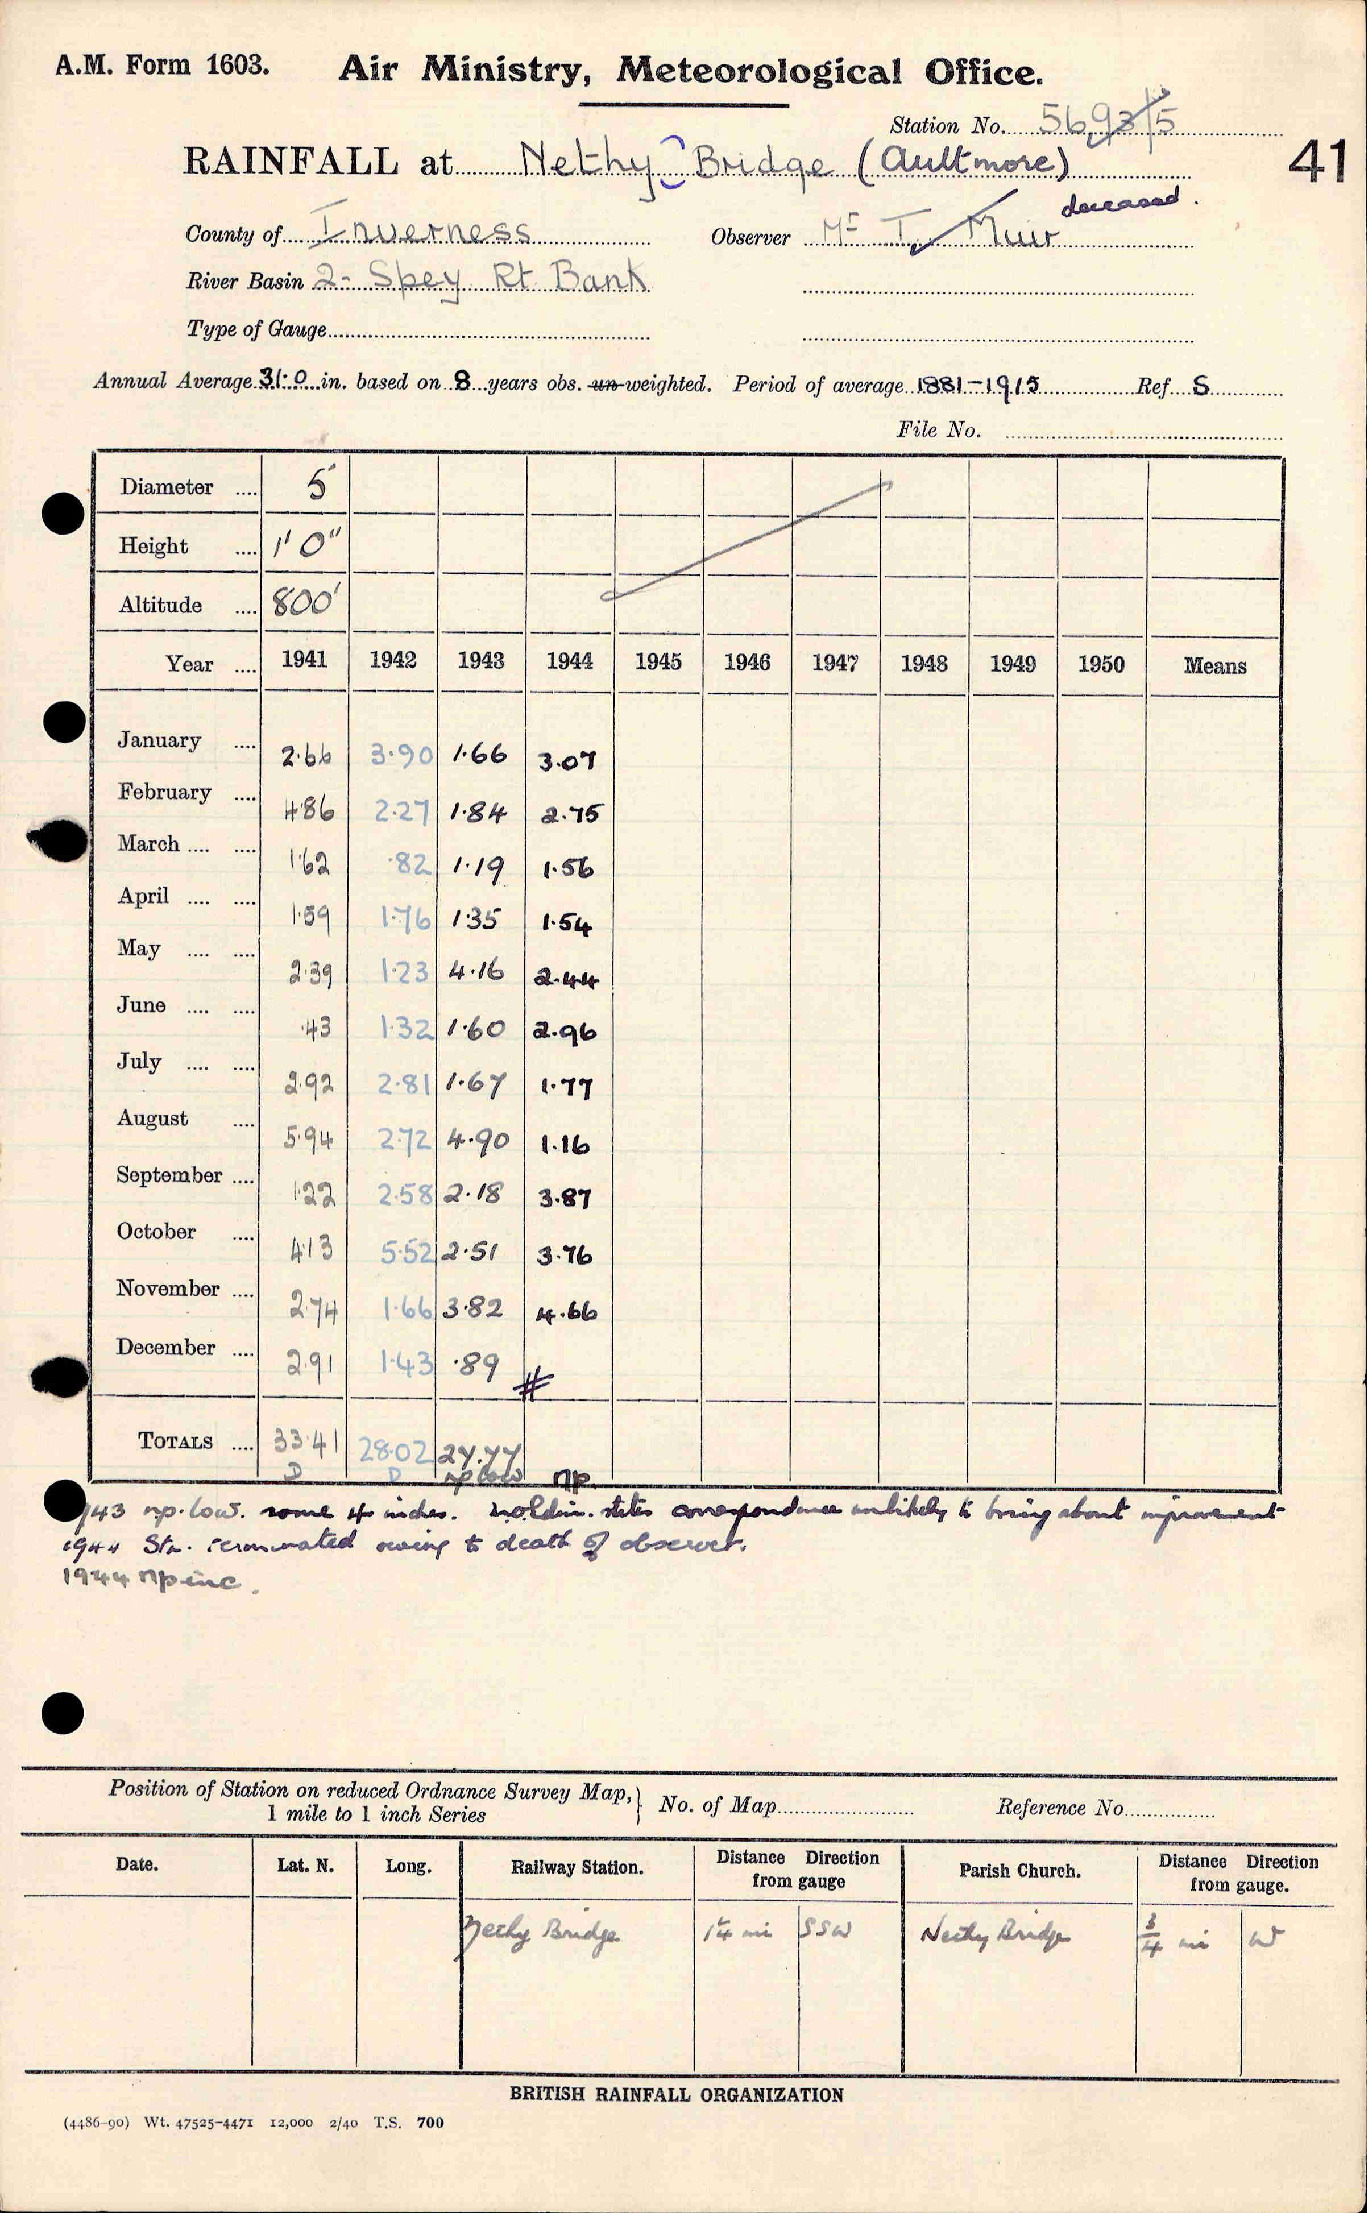 A.M. Form 1603. Air Ministry, Meteorological Office.
Station No. 5693/5
RAINFALL at Nethy Bridge (Aultmore) 41
deceased.
County of Inverness Observer Mr T. Muir
River Basin 2- Spey Rt. Bank
Type of Gauge
Annual Average 31.0 in. based on 8 years obs. un-weighted. Period of average 1881-1915 Ref. S
File No.
Diameter .... 5
Height .... 1' 0"
Altitude .... 800'
Year .... 1941 1942 1943 1944 1945 1946 1947 1948 1949 1950 Means
January .... 2.66 3.90 1.66 3.07
February .... 4.86 2.27 1.84 2.75
March .... .... 1.62 .82 1.19 1.56
April .... .... 1.59 1.76 1.35 1.54
May .... .... 2.39 1.23 4.16 2.44
June .... .... .43 1.32 1.60 2.96
July .... .... 2.92 2.81 1.67 1.77
August .... 5.94 2.72 4.90 1.16
September .... 1.22 2.58 2.18 3.87
October .... 4.13 5.52 2.51 3.76
November .... 2.74 1.66 3.82 4.66
December .... 2.91 1.43 .89 #
TOTALS .... 33.41 28.02 27.77
D D np low np
1943 np. low. some 4 inches. states correspondence unlikely to bring about improvement
1944 Stn. terminated owing to death of observer.
1944 np inc.
Position of Station on reduced Ordnance Survey Map, } No. of Map Reference No.
1 mile to 1 inch Series
Date. Lat. N. Long. Railway Station. Distance Direction from gauge Parish Church. Distance Direction from gauge.
Nethy Bridge 1¼ mi SSW Nethy Bridge ¾ mi W
BRITISH RAINFALL ORGANIZATION
(4486-90) Wt. 47525-4471 12,000 2/40 T.S. 700